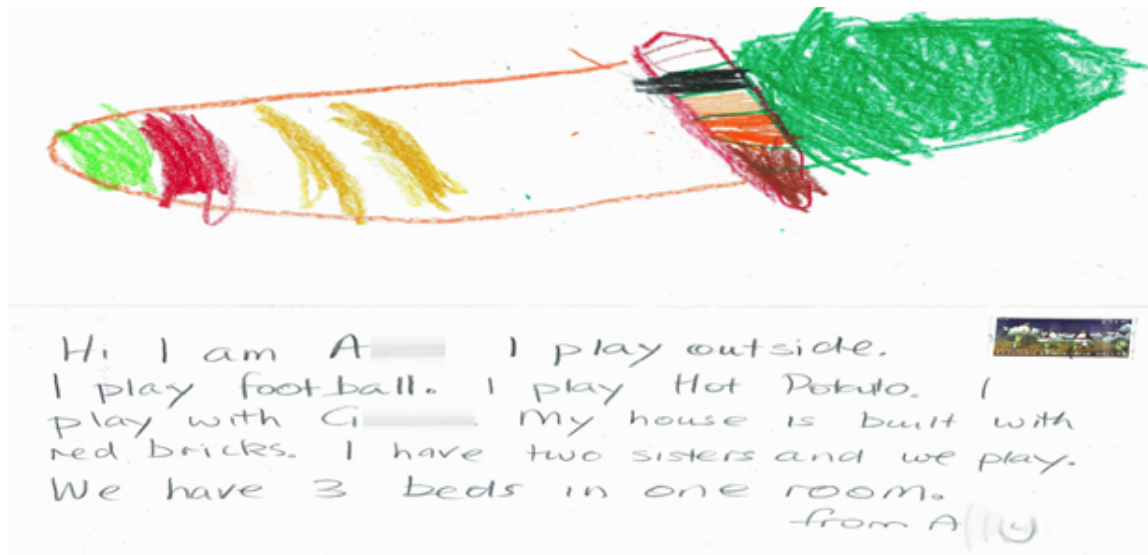 Hi I am A I play outside.
I play football. I play Hot Potato. I
play with G . My house is built with
red bricks. I have two sisters and we play.
We have 3 beds in one room.
from A